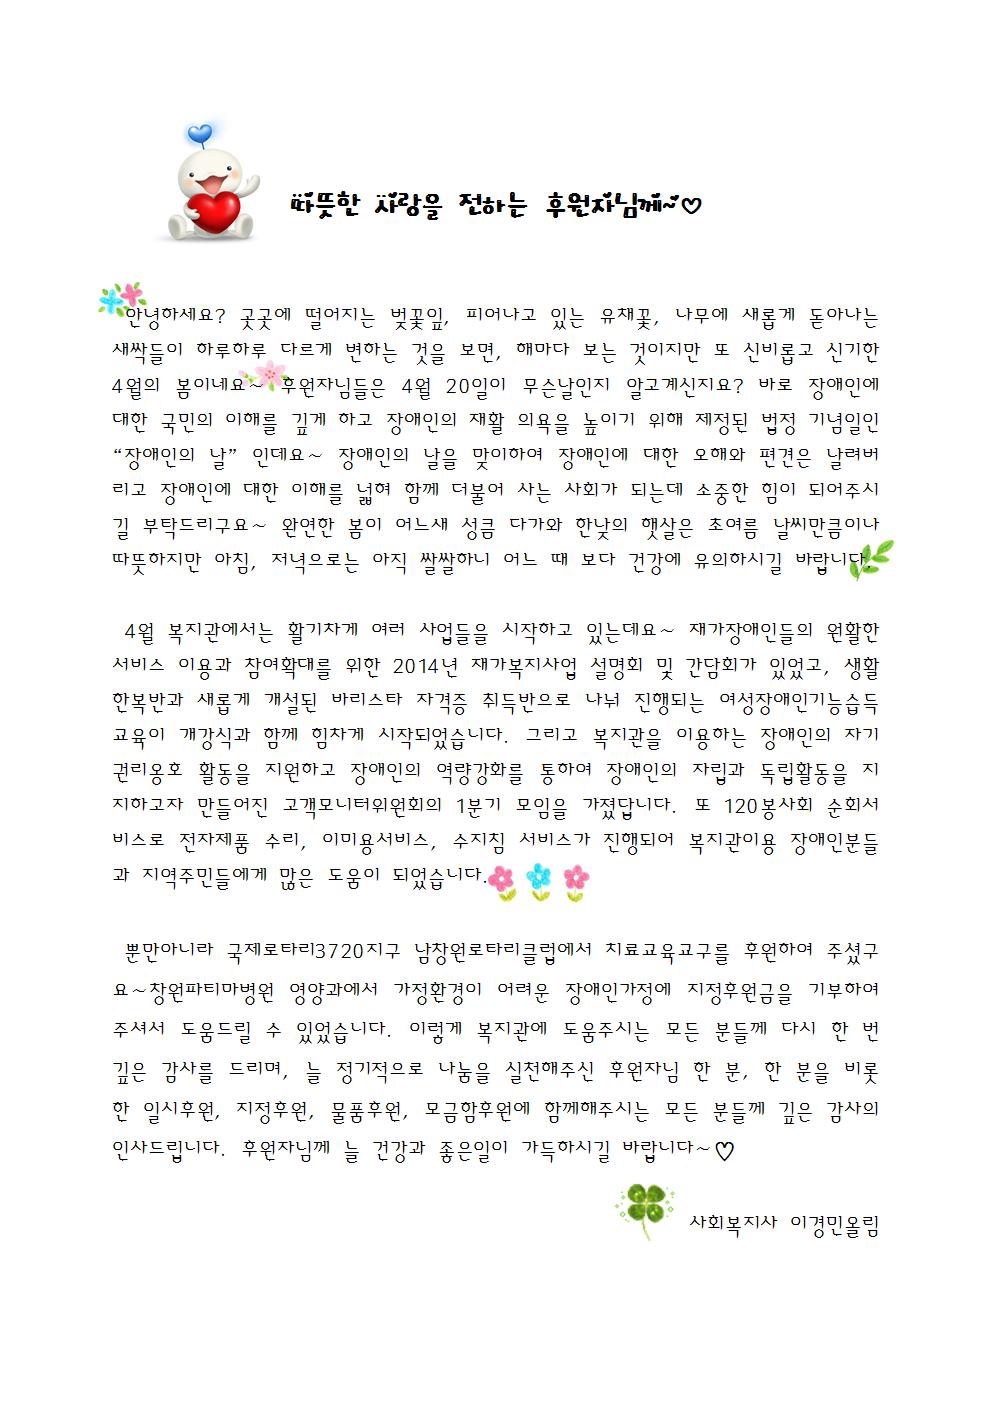 따뜻한 사랑을 전하는 후원자님께~♡
안녕하세요? 곳곳에 떨어지는 벚꽃잎, 피어나고 있는 유채꽃, 나무에 새롭게 돋아나는
새싹들이 하루하루 다르게 변하는 것을 보면, 해마다 보는 것이지만 또 신비롭고 신기한
4월의 봄이네요~ 후원자님들은 4월 20일이 무슨날인지 알고계신지요? 바로 장애인에
대한 국민의 이해를 깊게 하고 장애인의 재활 의욕을 높이기 위해 제정된 법정 기념일인
“장애인의 날” 인데요~ 장애인의 날을 맞이하여 장애인에 대한 오해와 편견은 날려버
리고 장애인에 대한 이해를 넓혀 함께 더불어 사는 사회가 되는데 소중한 힘이 되어주시
길 부탁드리구요~ 완연한 봄이 어느새 성큼 다가와 한낮의 햇살은 초여름 날씨만큼이나
따뜻하지만 아침, 저녁으로는 아직 쌀쌀하니 어느 때 보다 건강에 유의하시길 바랍니다.
4월 복지관에서는 활기차게 여러 사업들을 시작하고 있는데요~ 재가장애인들의 원활한
서비스 이용과 참여확대를 위한 2014년 재가복지사업 설명회 및 간담회가 있었고, 생활
한복반과 새롭게 개설된 바리스타 자격증 취득반으로 나눠 진행되는 여성장애인기능습득
교육이 개강식과 함께 힘차게 시작되었습니다. 그리고 복지관을 이용하는 장애인의 자기
권리옹호 활동을 지원하고 장애인의 역량강화를 통하여 장애인의 자립과 독립활동을 지
지하고자 만들어진 고객모니터위원회의 1분기 모임을 가졌답니다. 또 120봉사회 순회서
비스로 전자제품 수리, 이미용서비스, 수지침 서비스가 진행되어 복지관이용 장애인분들
과 지역주민들에게 많은 도움이 되었습니다.
뿐만아니라 국제로타리3720지구 남창원로타리클럽에서 치료교육교구를 후원하여 주셨구
요~창원파티마병원 영양과에서 가정환경이 어려운 장애인가정에 지정후원금을 기부하여
주셔서 도움드릴 수 있었습니다. 이렇게 복지관에 도움주시는 모든 분들께 다시 한 번
깊은 감사를 드리며, 늘 정기적으로 나눔을 실천해주신 후원자님 한 분, 한 분을 비롯
한 일시후원, 지정후원, 물품후원, 모금함후원에 함께해주시는 모든 분들께 깊은 감사의
인사드립니다. 후원자님께 늘 건강과 좋은일이 가득하시길 바랍니다~♡
사회복지사 이경민올림